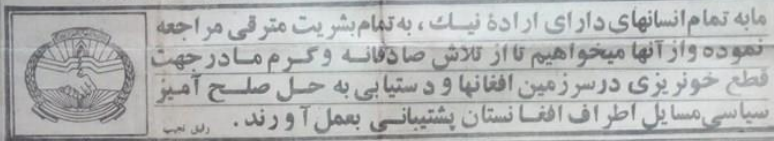 ما به تمام انسانهای دارای ارادهٔ نیک ، به تمام بشریت مترقی مراجعه
نموده و از آنها میخواهیم تا از تلاش صادقانه و گرم ما در جهت
قطع خونریزی در سرزمین افغانها و دستیابی به حل صلح آمیز
سیاسی مسایل اطراف افغانستان پشتیبانی بعمل آورند .
رفیق نجیب